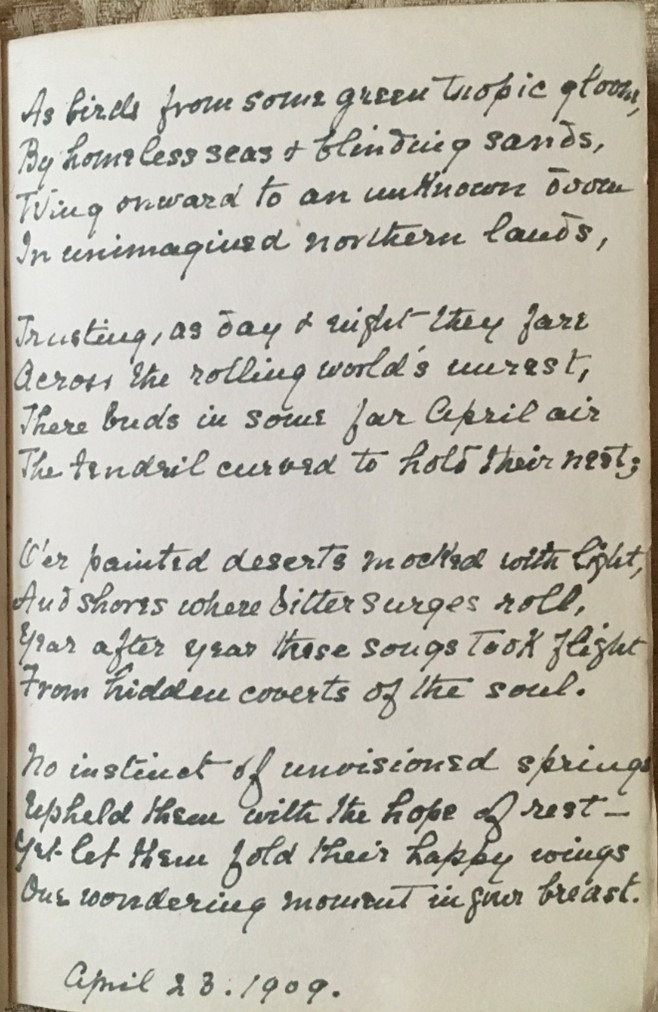 As birds from some green tropic gloom,
By homeless seas & blinding sands,
Wing onward to an unknown doom
In unimagined northern lands,
Trusting, as day & night they fare
Across the rolling world's unrest,
There buds in some far April air
The tendril curved to hold their nest;
O'er painted deserts mocked with light,
And shores where bitter surges roll,
Year after year these songs took flight
From hidden coverts of the soul.
No instinct of unvisioned springs
Upheld them with the hope of rest —
Yet let them fold their happy wings
One wondering moment in your breast.
April 23. 1909.